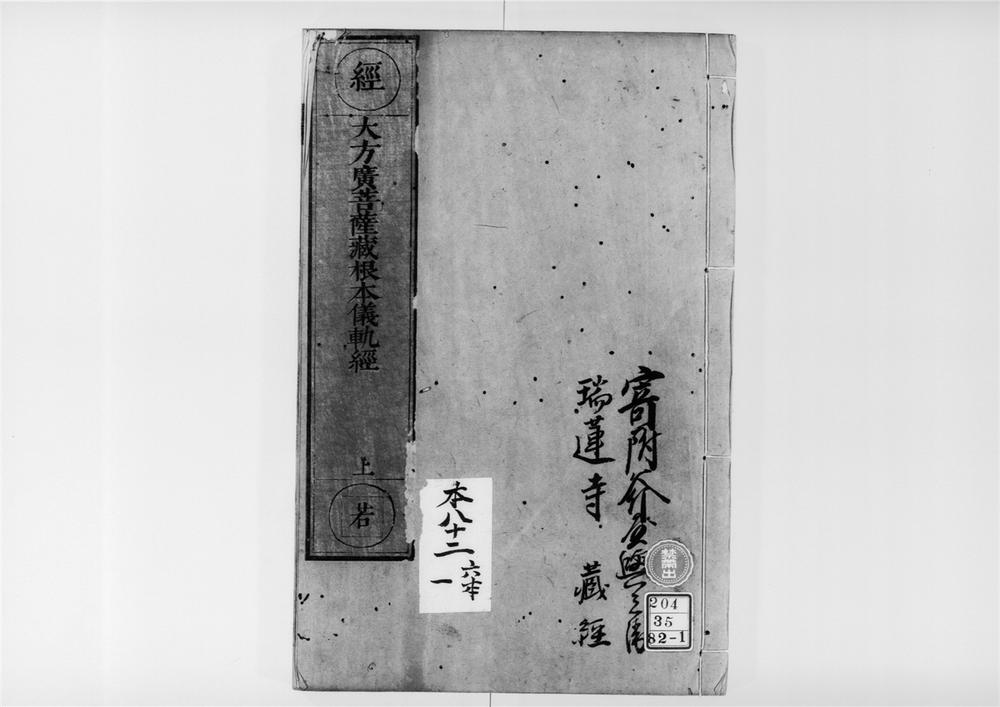 寄附
瑞蓮寺 藏經
禁帶出
204
35
82-1
經
大方廣菩薩藏根本儀軌經
上
若
本八十二
六本
一